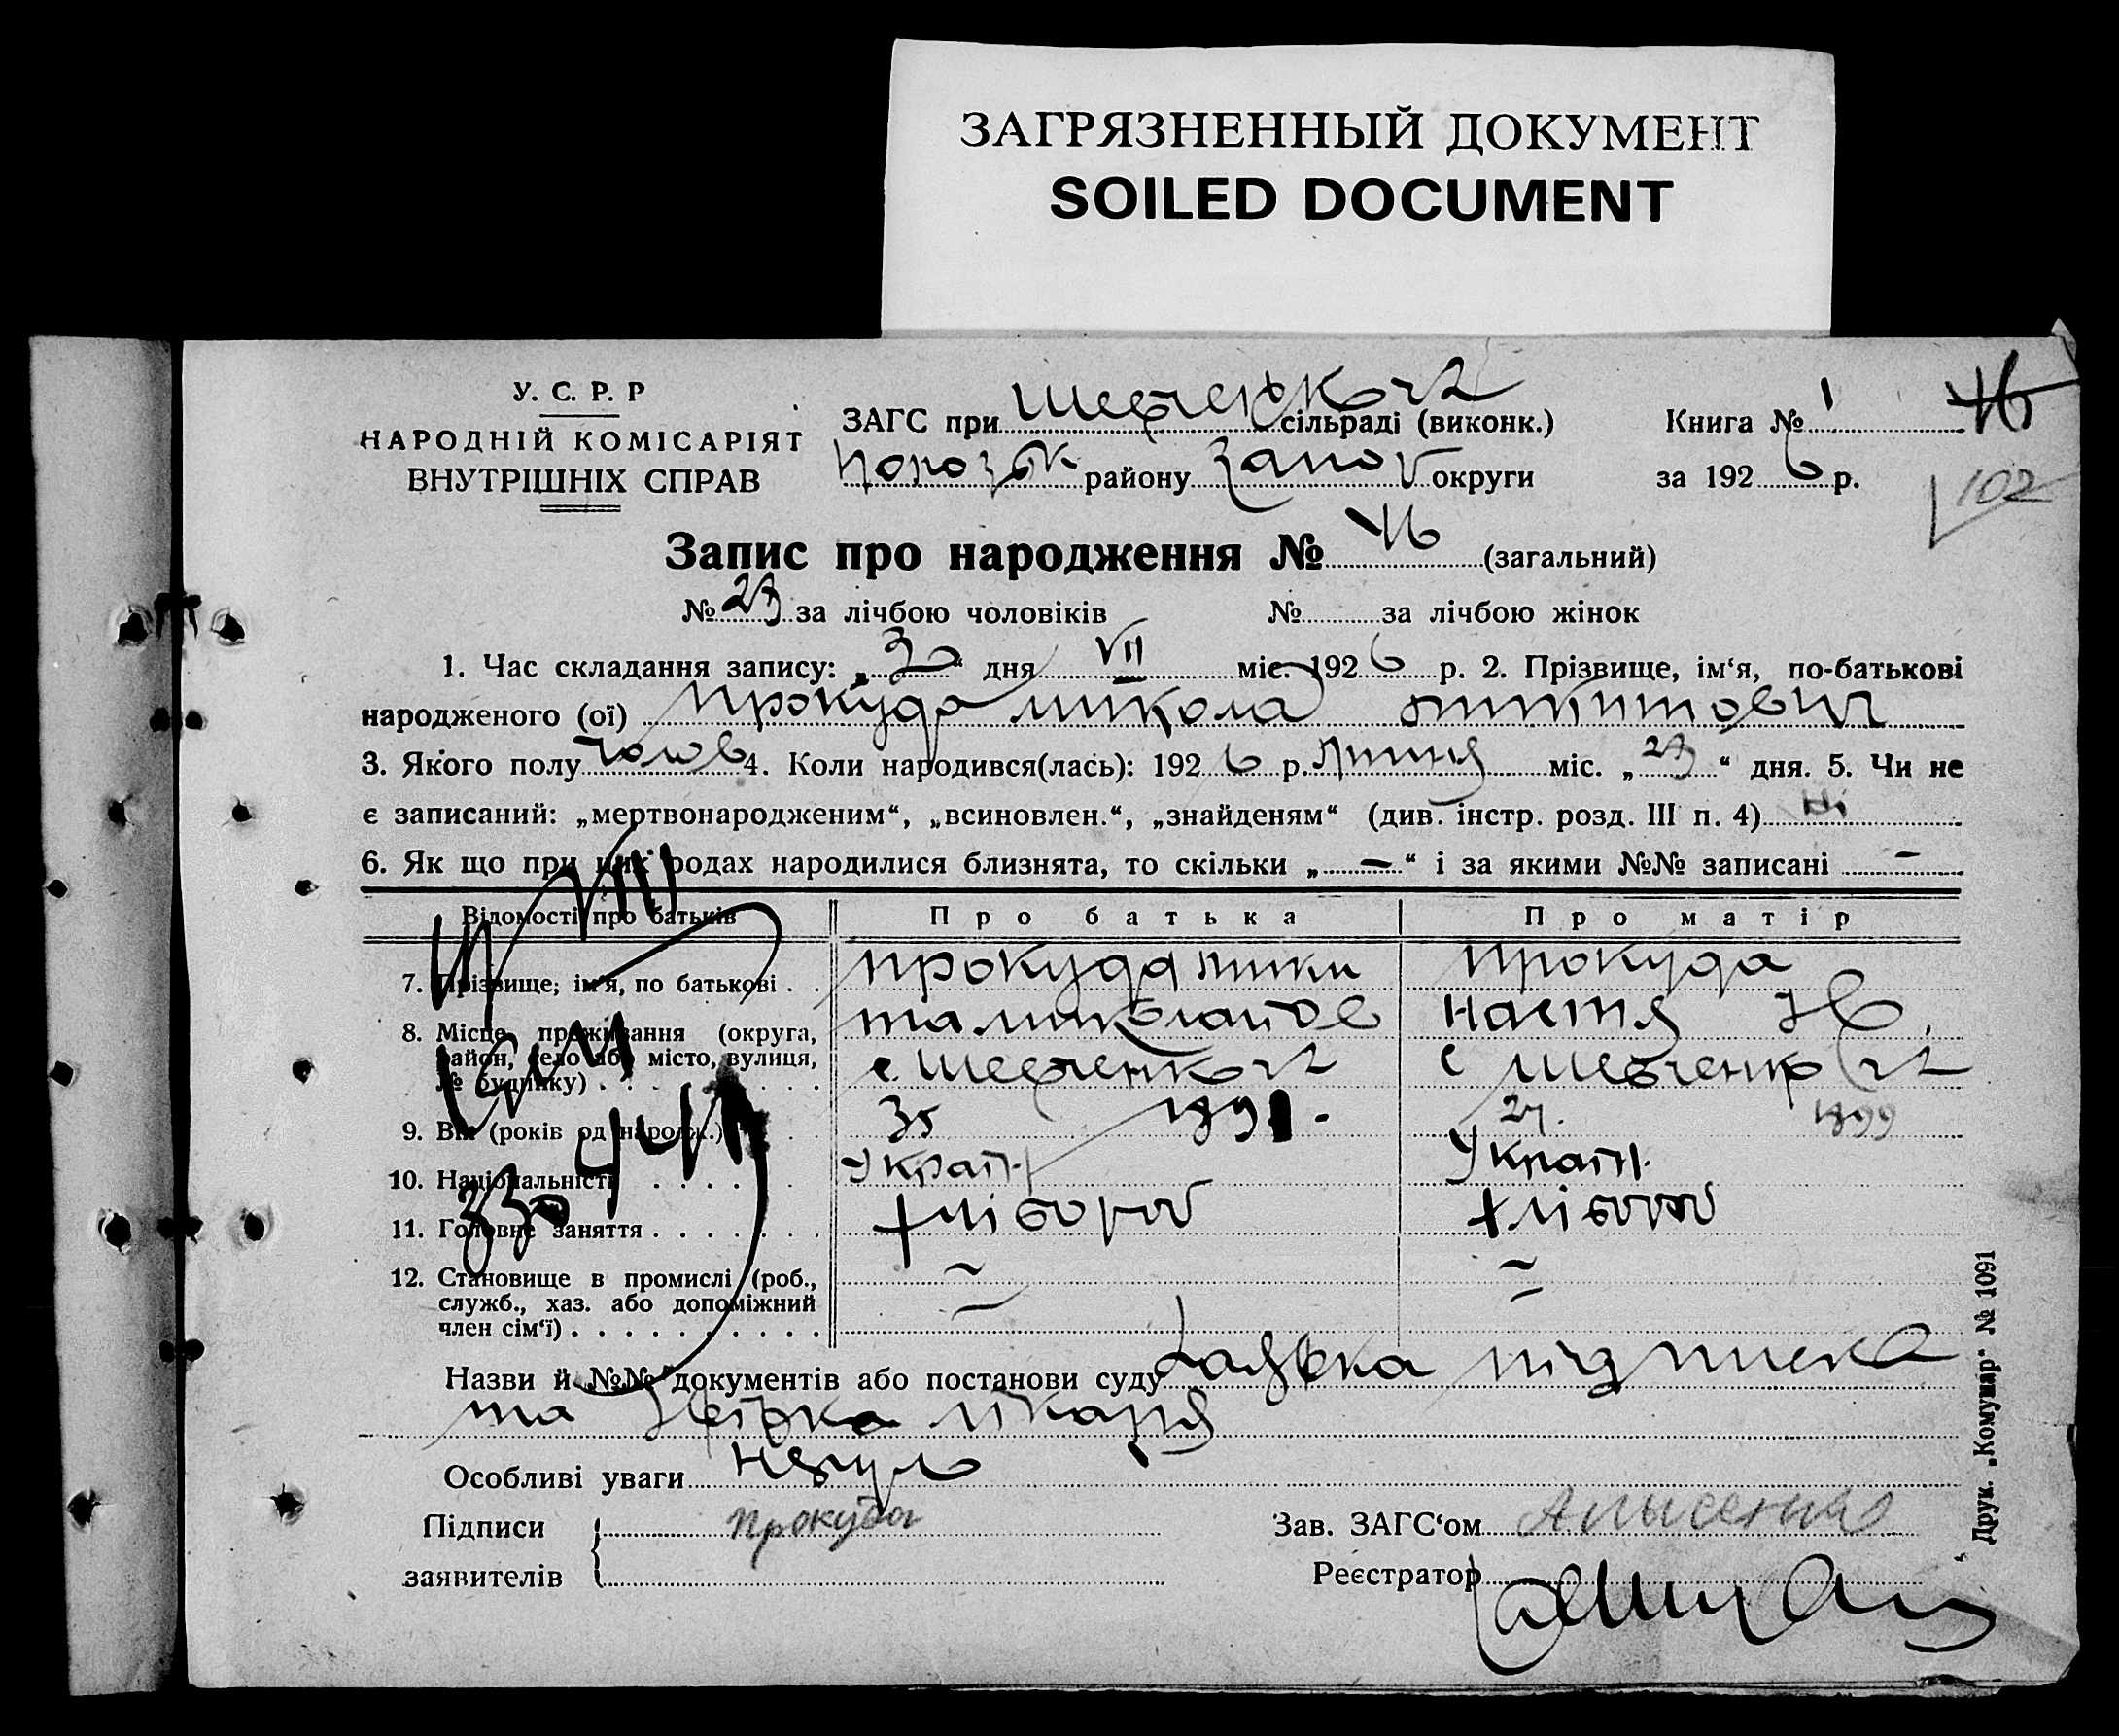 ЗАГРЯЗНЕННЫЙ ДОКУМЕНТ
SOILED DOCUMENT
У. С. Р. Р
НАРОДНІЙ КОМІСАРІЯТ
ВНУТРІШНІХ СПРАВ
ЗАГС при сільраді (виконк.)
району Запор округи
Книга № 1
46
за 1926 р.
102
Запис про народження № 46 (загальний)
№ 23 за лічбою чоловіків № за лічбою жінок
1. Час складання запису: „30“ дня VII міс. 1926 р. 2. Прізвище, ім‘я, по-батькові
народженого (ої) Прокуда Микола Микитович
3. Якого полу чолов 4. Коли народився(лась): 1926 р. Липня міс. „23“ дня. 5. Чи не
є записаний: „мертвонародженим“, „всиновлен.“, „знайденям“ (див. інстр. розд. III п. 4) Ні
6. Як що при цих родах народилися близнята, то скільки „—“ і за якими №№ записані —
Відомості про батьків Про батька Про матір
7. Прізвище, ім‘я, по батькові . . Прокуда Мики Прокуда
Настя
8. Місце проживання (округа,
район, село або місто, вулиця,
№ будинку) . . . . . . . . .
9. Вік (років од народж.) 35 1891. 27. 1899
10. Національність . . . . . . Україн. Україн.
11. Головне заняття . . . . . . . Хлібороб Хлібороб
12. Становище в промислі (роб., — —
служб., хаз. або допоміжний
член сім‘ї) . . . . . . . . . . — —
Назви й №№ документів або постанови суду підписка
та лікаря
Особливі уваги
Підписи Прокуда
заявителів
Зав. ЗАГС‘ом
Реєстратор
Друк. „Комунар“ № 1091